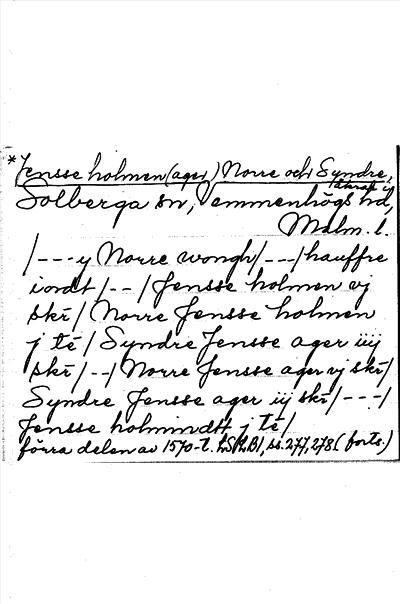 *Jensse holmen (ager) Norre och Syndre,
åkrar i
Solberga sn, Vemmenhögs hd,
Malm. l.
/---y Norre wongh/---/hauffre
iordt/--/Jensse holmen vj
skr̄/Norre Jensse holmen
j tē/Syndre Jensse ager iiij
skr̄/--/Norre Jensse ager vj skr̄/
Syndre Jensse ager iij skr̄/---/
Jensse holmindtt j tē/
förra delen av 1570-t. ss. 277, 278 (forts.)